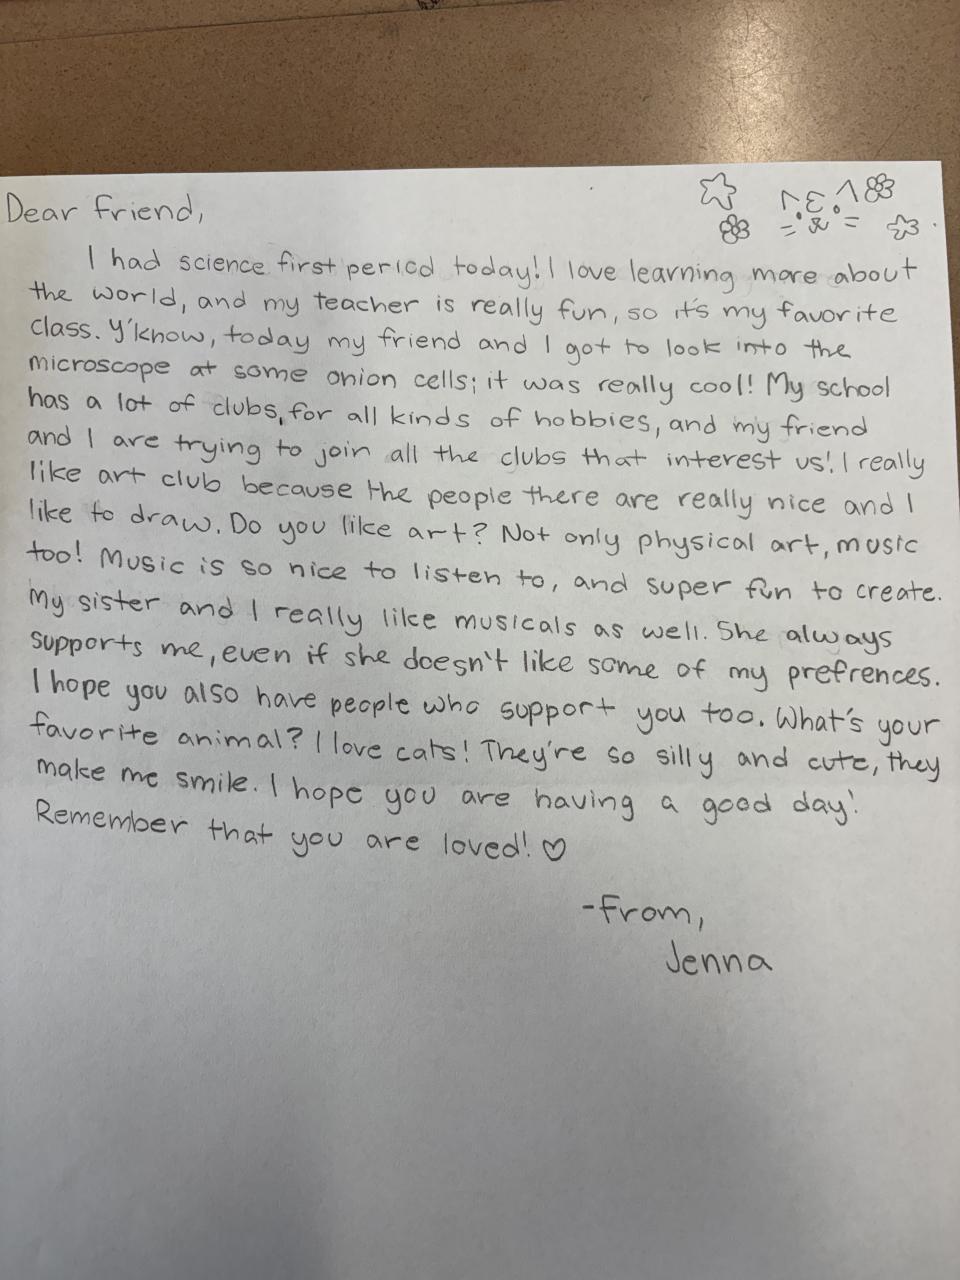 Dear friend,
I had science first period today! I love learning more about
the world, and my teacher is really fun, so it's my favorite
class. Y'know, today my friend and I got to look into the
microscope at some onion cells; it was really cool! My school
has a lot of clubs, for all kinds of hobbies, and my friend
and I are trying to join all the clubs that interest us! I really
like art club because the people there are really nice and I
like to draw. Do you like art? Not only physical art, music
too! Music is so nice to listen to, and super fun to create.
My sister and I really like musicals as well. She always
supports me, even if she doesn't like some of my prefrences.
I hope you also have people who support you too. What's your
favorite animal? I love cats! They're so silly and cute, they
make me smile. I hope you are having a good day!
Remember that you are loved! ♡
-From,
Jenna